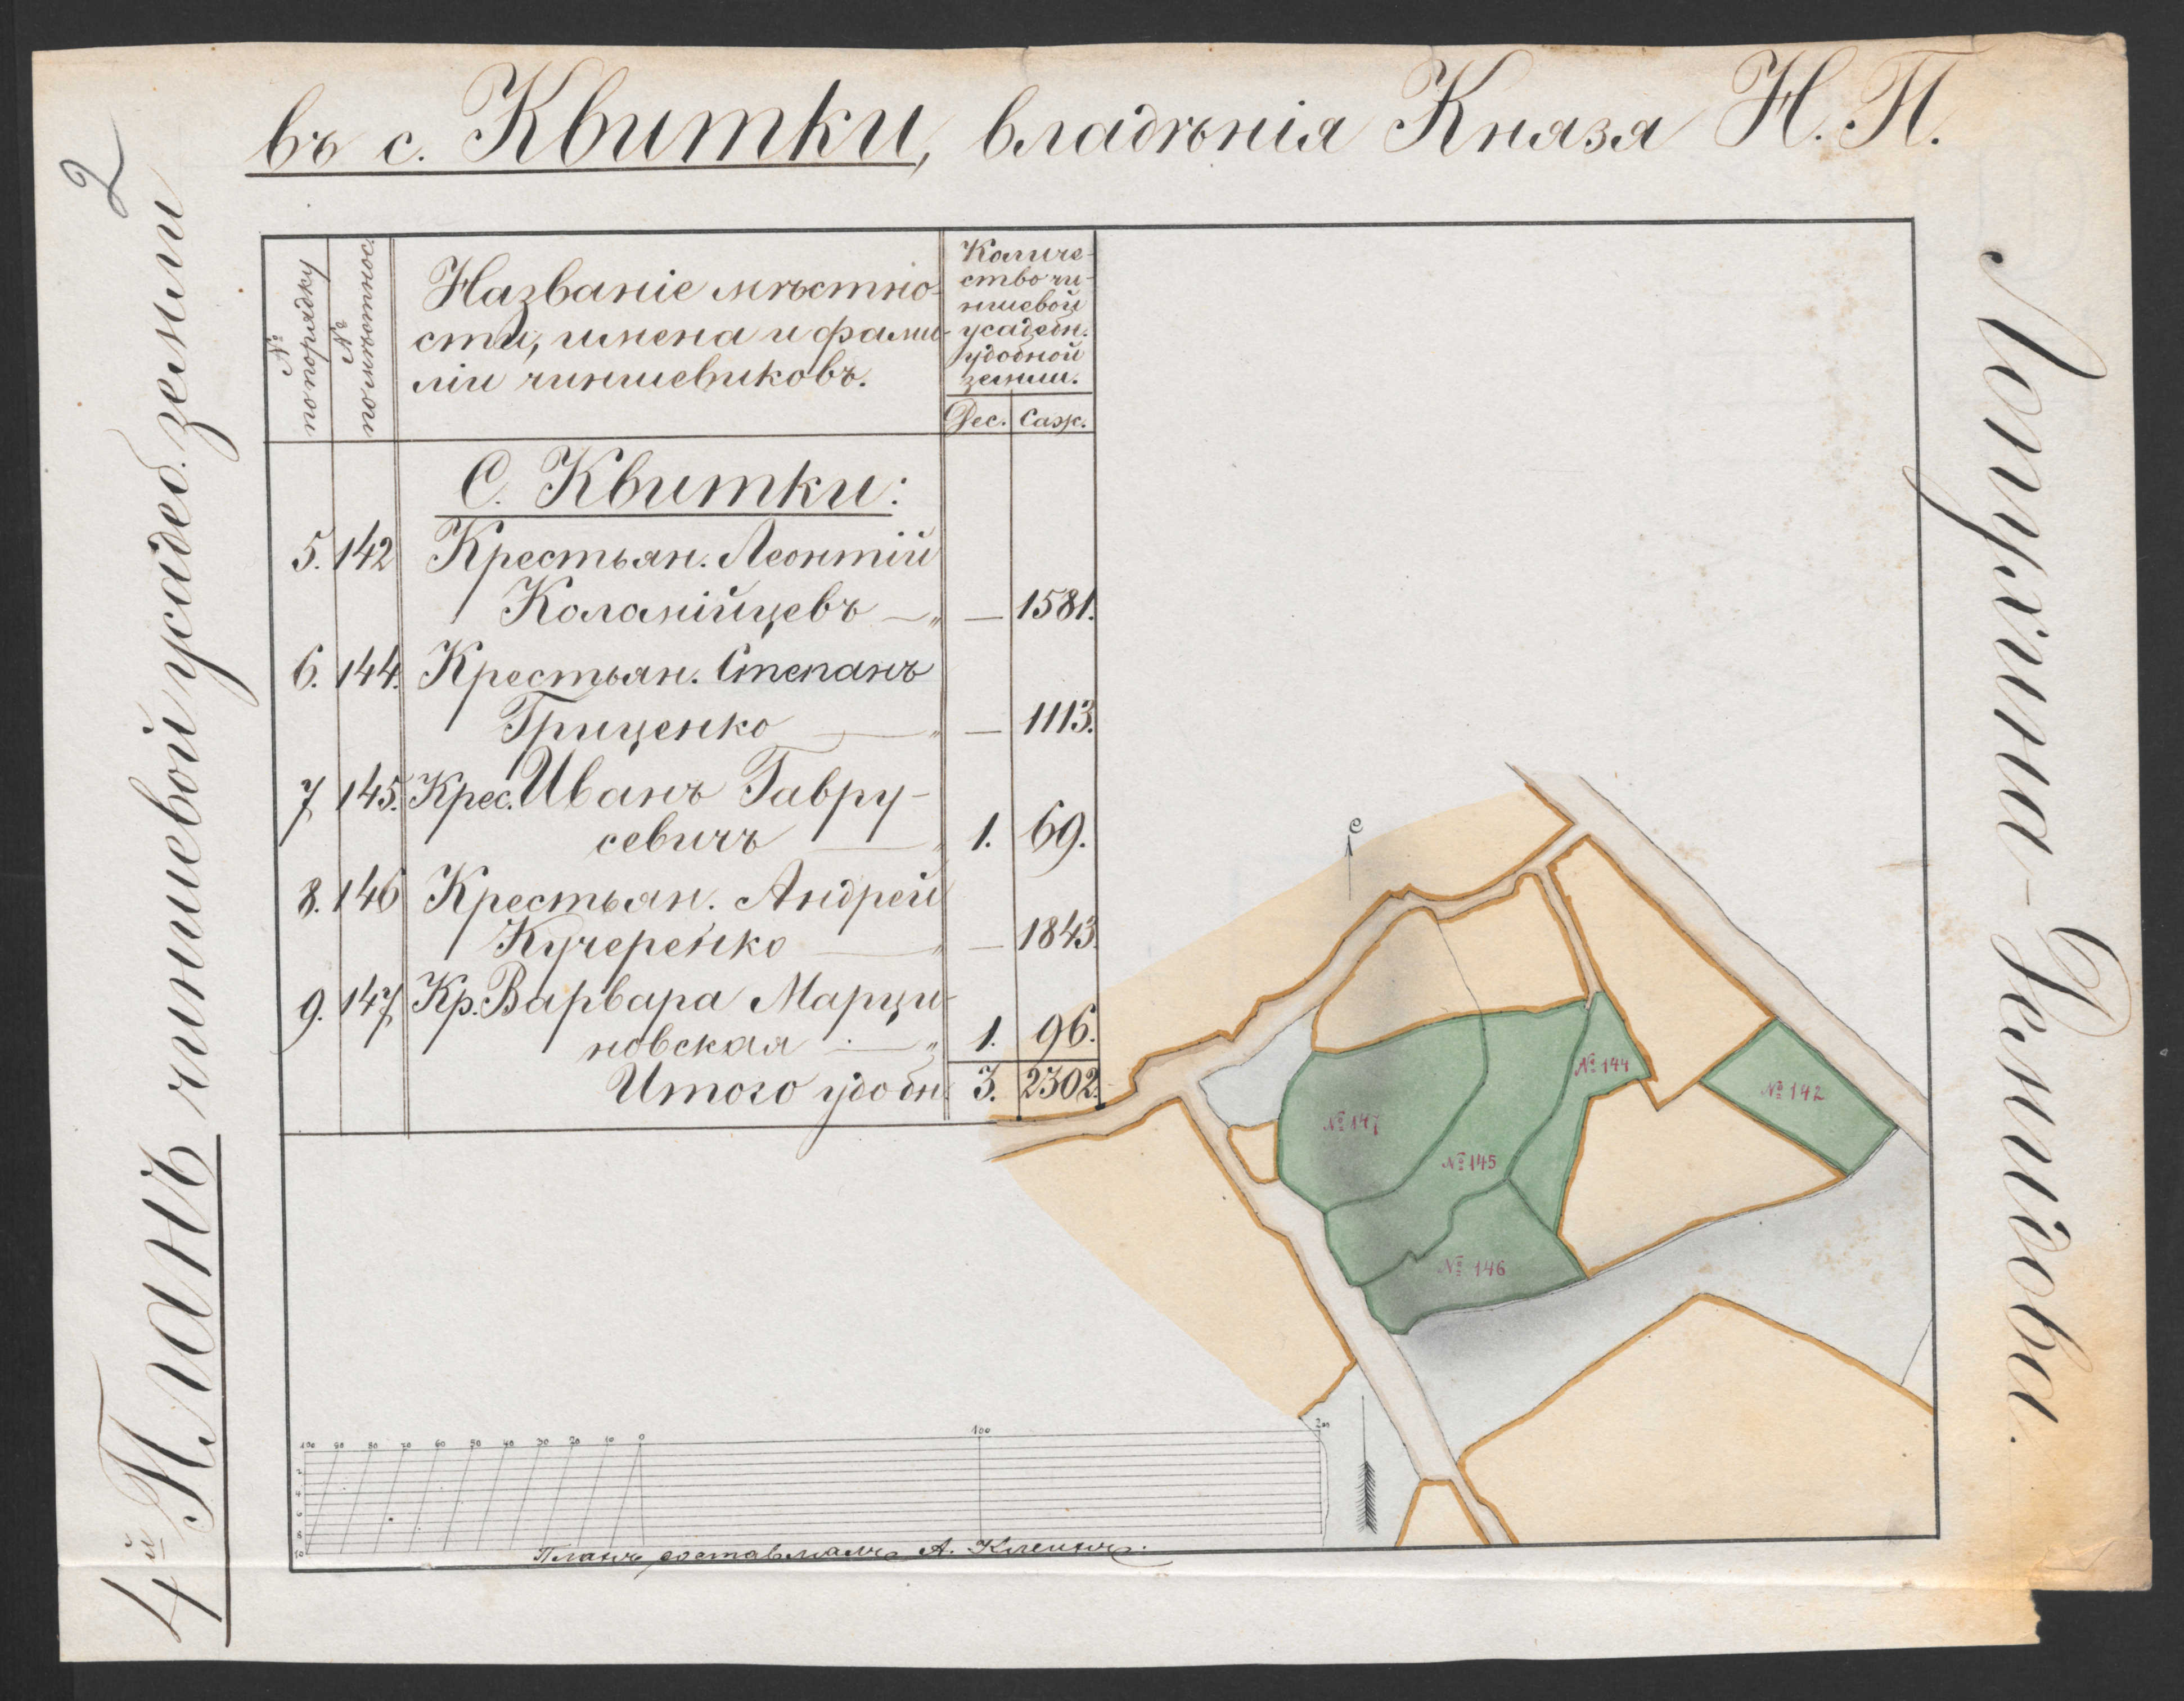 2
4й Планъ чиншевой усадеб. земли
въ с. Квитки, владѣнія Князя Н. П.
Лопухина-Демидова.
№ по порядку
№
Названіе мѣстно-
сти, имена и фами-
ліи чиншевиковъ.
Количе-
ство чи-
ншевой
усадебн.
удобной
земли.
Дес. Саж.
С. Квитки:
5. 142 Крестьян. Леонтій
Коломійцевъ — „ — 1581.
6. 144. Крестьян. Степанъ
Гриценко — „ — 1113.
7 145. Крес. Иванъ Гавру-
севичъ — „ 1. 69.
8. 146 Крестьян. Андрей
Кучеренко — „ — 1843.
9. 147 Кр. Варвара Марци-
новская — „ 1. 96.
Итого удобн. 3. 2302.
с
№ 144
№ 142
№ 147
№ 145
№ 146
100 90 80 70 60 50 40 30 20 10 0 100 200
2
4
6
8
10
Планъ составлялъ А.